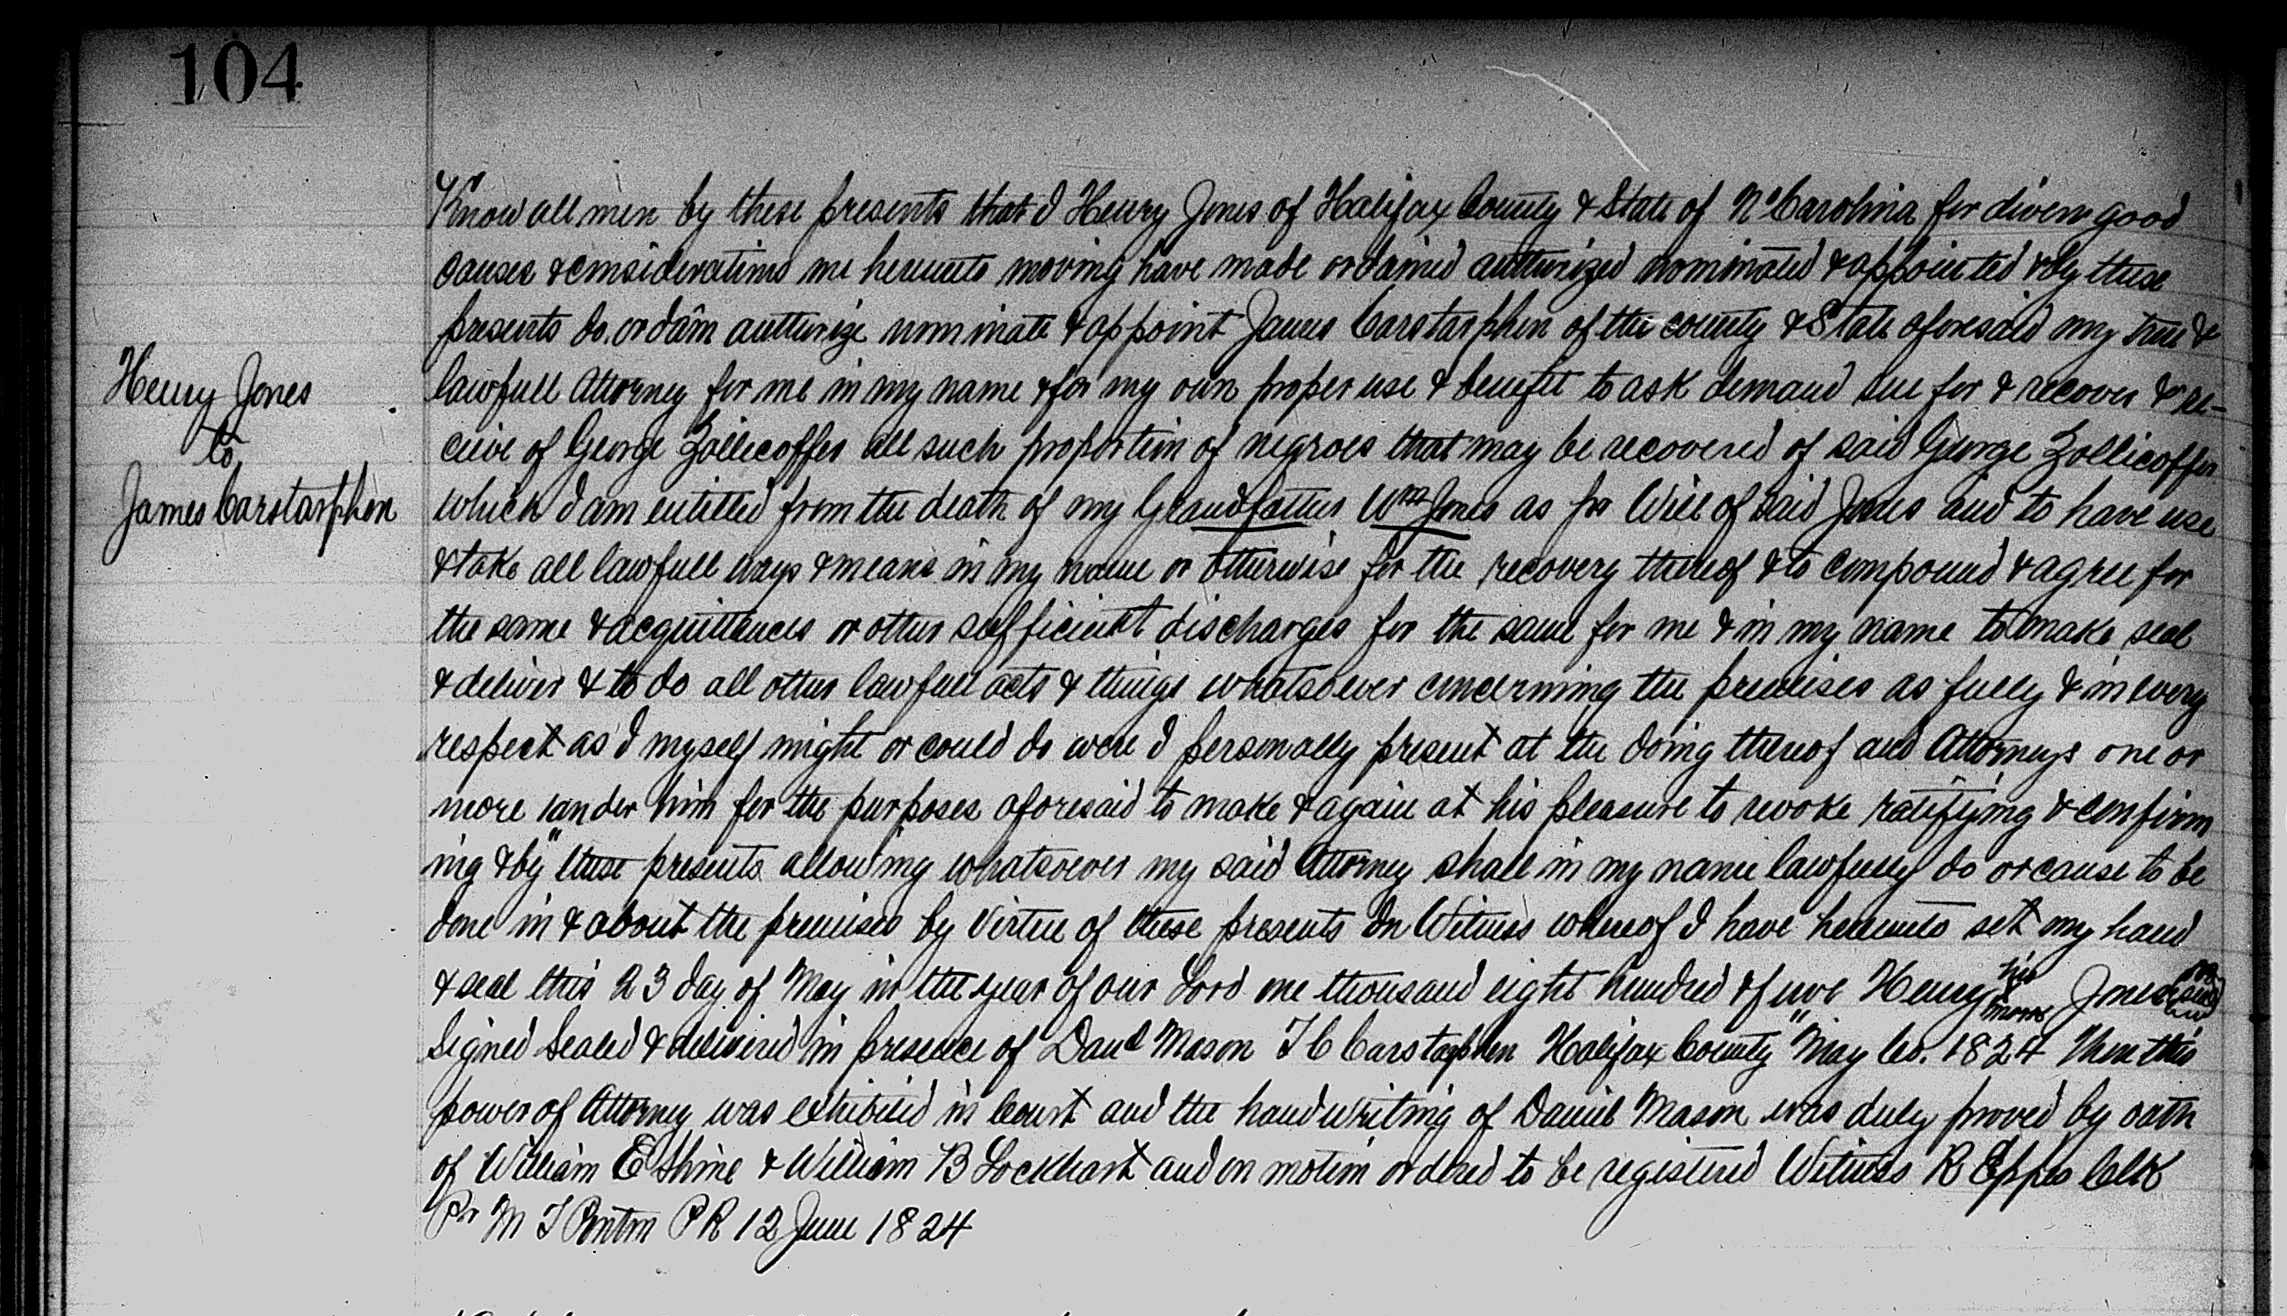 104
Know all men by these presents that I Henry Jones of Halifax County & State of N° Carolina for divers good
causes & considerations me hereunto moving have made ordained authorized nominated & appointed & by these
presents do ordain authorize nominate & appoint James Carstarphen of the county & State aforesaid my true &
Henry Jones
to
James Carstarphen
lawfull Attorney for me in my name & for my own proper use & benefit to ask demand sue for & recover & re-
ceive of George Zollicoffer all such proportion of negroes that may be recovered of said George Zollicoffer
which I am entitled from the death of my Grandfather Wm Jones as pr Will of said Jones and to have use
& take all lawfull ways & means in my name or otherwise for the recovery thereof & to compound & agree for
the same & acquittances or other sufficient discharges for the same for me & in my name to make seal
& deliver & to do all other lawfull acts & things whatsoever concerning the premises as fully & in every
respect as I myself might or could do were I personally present at the doing thereof and Attorneys one or
more under him for the purposes aforesaid to make & again at his pleasure to revoke ratifying & confirm
ing & by" these presents allowing whatsoever my said Attorney shall in my name lawfully do or cause to be
done in & about the premises by virtue of these presents In Witness whereof I have hereunto set my hand
& seal this 23 day of May in the year of our Lord one thousand eight hundred & five Henry his mark Jones seal
Signed Sealed & delivered in presence of Danl Mason J C Carstarphen Halifax County" May Co. 1824 Then this
power of Attorney was exhibited in Court and the handwriting of Daniel Mason was duly proved by oath
of William E Shine & William B Lockhart and on motion ordered to be registered Witness R Eppes Clk
Pr M T Ponton P R 12 June 1824